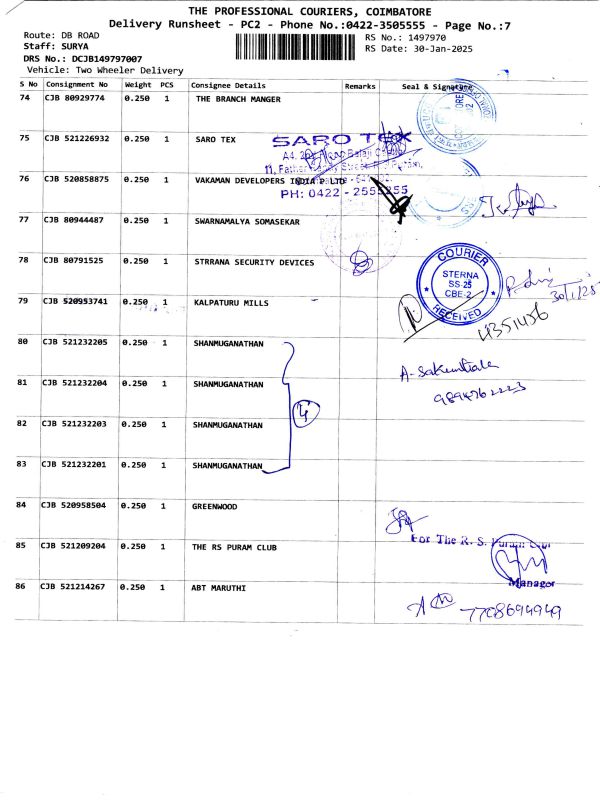 THE PROFESSIONAL COURIERS, COIMBATORE
Delivery Runsheet - PC2 - Phone No.:0422-3505555 - Page No.:7
Route: DB ROAD
RS No.: 1497970
Staff: SURYA
RS Date: 30-Jan-2025
DRS No.: DCJB149797007
Vehicle: Two Wheeler Delivery
S No Consignment No Weight PCS Consignee Details Remarks Seal & Signature
74 CJB 80929774 0.250 1 THE BRANCH MANGER
75 CJB 521226932 0.250 1 SARO TEX
SARO TEX
76 CJB 520858875 0.250 1 VAKAMAN DEVELOPERS INDIA P LTD
PH: 0422 - 2555255
77 CJB 80944487 0.250 1 SWARNAMALYA SOMASEKAR
78 CJB 80791525 0.250 1 STRRANA SECURITY DEVICES
COURIER
STERNA
SS-25
CBE-2
RECEIVED
30/1/25
79 CJB 520953741 0.250 1 KALPATURU MILLS
4351456
80 CJB 521232205 0.250 1 SHANMUGANATHAN
A-Sakunthala
81 CJB 521232204 0.250 1 SHANMUGANATHAN
9894762223
4
82 CJB 521232203 0.250 1 SHANMUGANATHAN
83 CJB 521232201 0.250 1 SHANMUGANATHAN
84 CJB 520958504 0.250 1 GREENWOOD
For The R. S. Puram Club
85 CJB 521209204 0.250 1 THE RS PURAM CLUB
Manager
86 CJB 521214267 0.250 1 ABT MARUTHI
7708694949